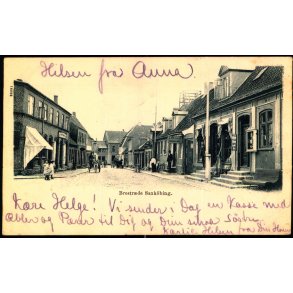 Hilsen fra Anna.
Brostræde Saxkjöbing.
Kære Helge! Vi sender i Dag en Kasse med
Æbler og Pærer til Dig og Dem
Kærlig Hilsen fra Din